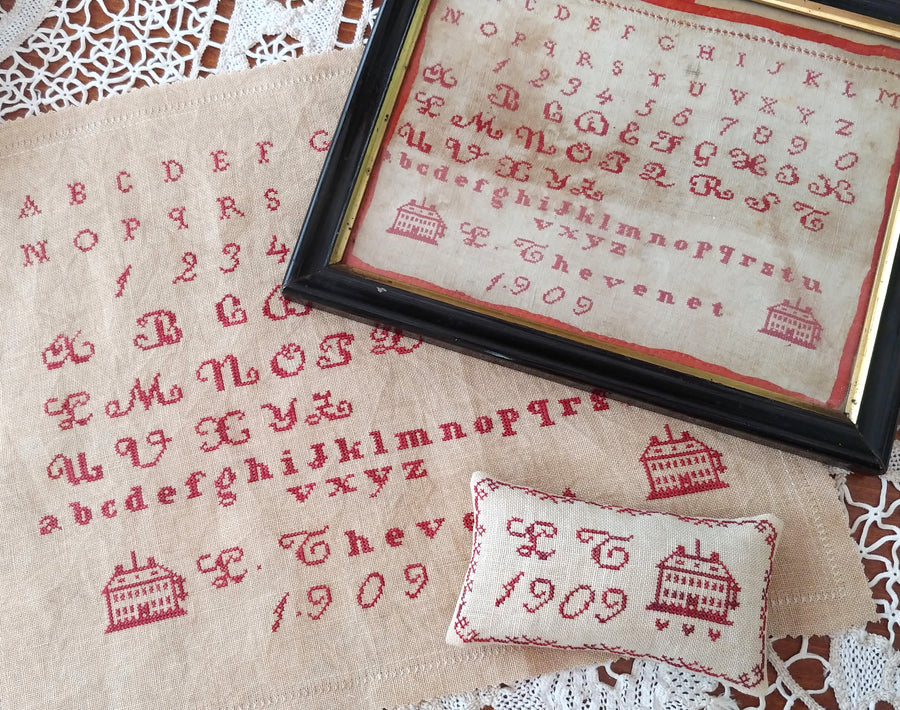 A B C D E F G
N O P q R S
1 2 3 4
A B C D
L M N O P Q
U V X Y Z
abcdefghiJklmnopqrs
vxyz
L. Theve
1909
C D E F G H I J K L M
N O P q R S T U V X Y Z
1 2 3 4 5 6 7 8 9 0
A B C D E F G H I K
L M N O P Q R S T
U V X Y Z
abcdefghiJklmnopqrstu
vxyz
L. Thevenet
1909
L T
1909